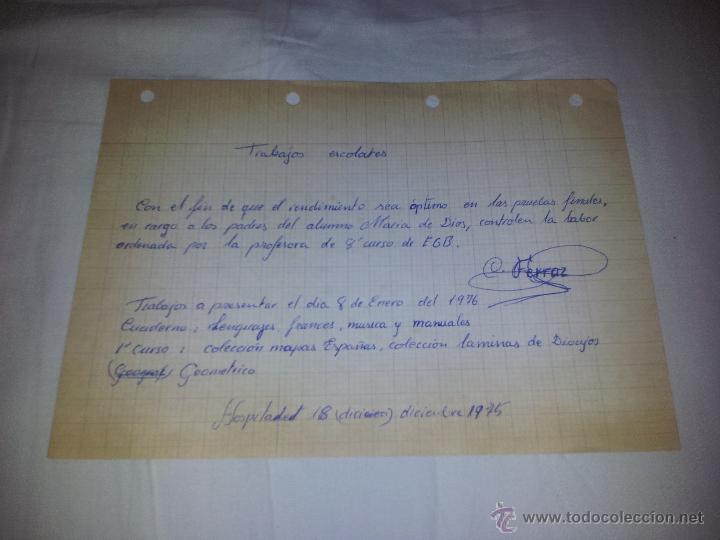 Trabajos escolares
Con el fin de que el rendimiento sea óptimo en las pruebas finales,
en cargo a los padres del alumno Maria de Dios, controlen la labor
ordenada por la profesora de 8º curso de EGB.
C. Ferraz
Trabajos a presentar el dia 8 de Enero del 1976
Cuaderno: Lenguajes, frances, musica y manuales
1º curso: colección mapas Españas, colección laminas de Dibujos
Geometrico
Hospitalet 18 diciembre 1975
© www.todocoleccion.net